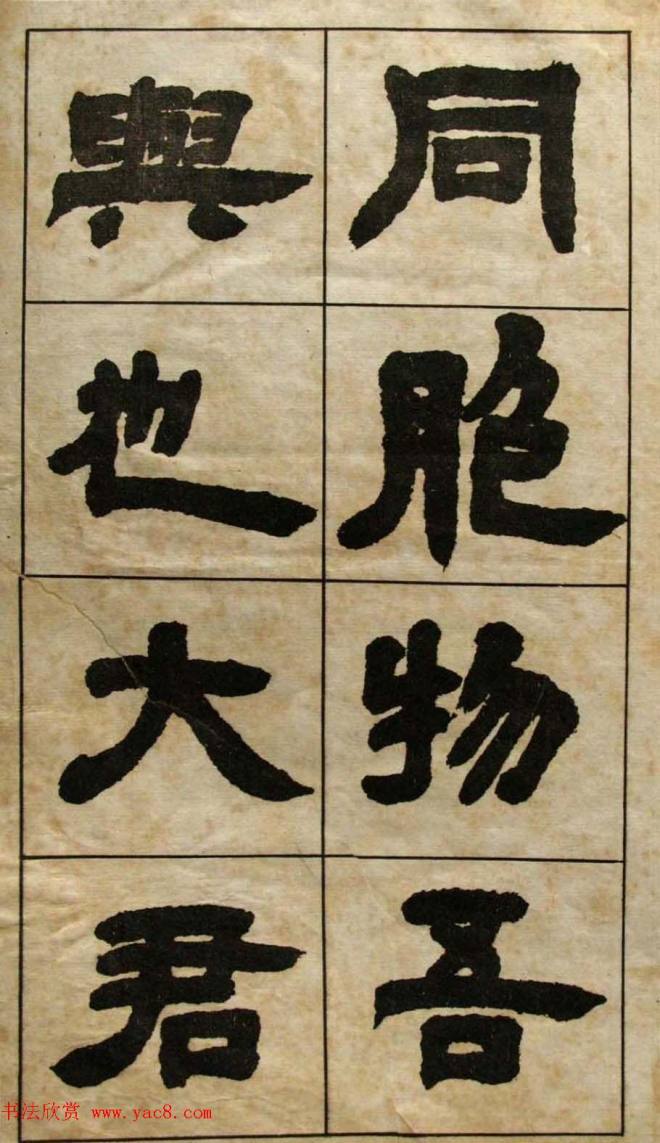 同胞物吾
與也大君
书法欣赏 www.yac8.com